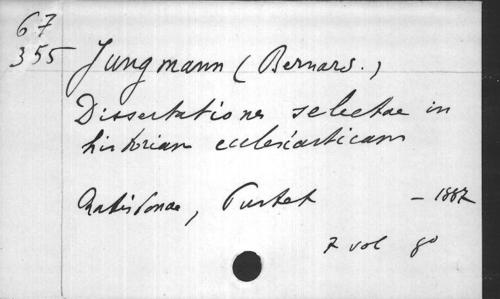 67
355
Jungmann (Bernard.)
Dissertationes selectae in
historiam ecclesiasticam
Ratisbonae, Pustet — 1887
7 vol 8o